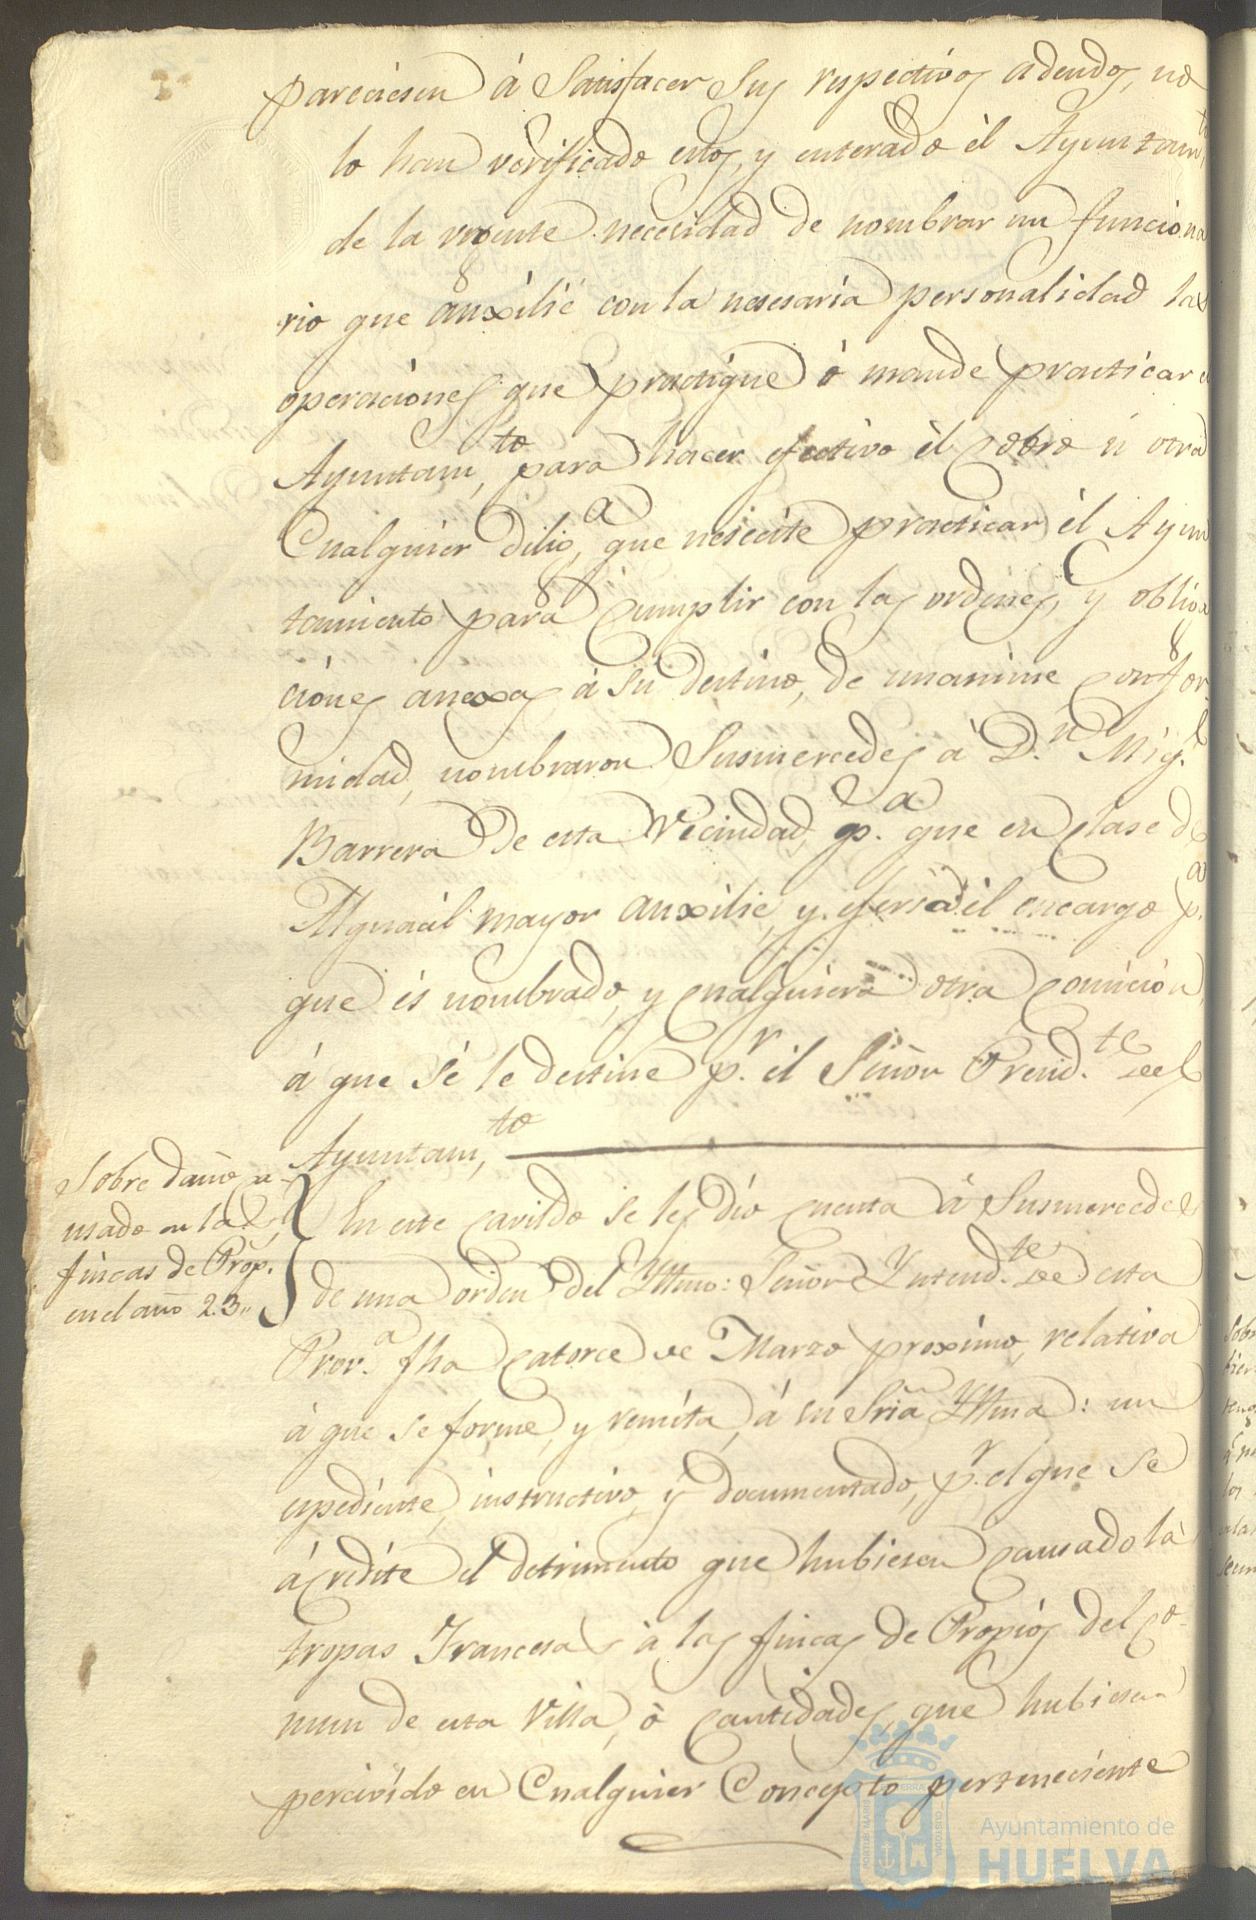 pareciesen á Satisfacer Sus respectivos adeudos, no
lo han verificado estos, y enterado él Ayuntamto
de la urgente necesidad de nombrar un funciona
rio que auxílie con la nesesaria personalidad las
operaciones que practique ó mande practicar el
Ayuntam,to para hacer efectivo él cobro ú otra
Cualquier dilig,a que nesecite practicar él Ayun
tamiento para Cumplir con las ordenes, y obliga
ciones anexas á su destino, de unanime confor
midad, nombraron Susmercedes á D.n Mig.l
Barrera de esta Veciudad, p.a que en clase de
Alguacil mayor auxilie, y ejersa él encargo p.a
que és nombrado, y cualquiera otra comición
á que sé le destine p.r él Señor Presid.te del
Ayuntam,to
Sobre daño ca
usado en las
fincas de Prop.
en el año 23,,
En este cavildo se les dio cuenta á Susmercedes
de una orden del Yltmo: Señor Yntend.te de esta
Prov.a fha catorce de Marzo proxímo, relativa
á que se forme, y remíta, á su Sria Yltma: un
espediente, instructivo, y documentado, p.r el que se
ácredite el detrimento que hubiesen causado lá
tropas Francesas á las fincas de Propiós del co-
mun de esta Villa, ó cantidades, que hubiesen
percivido en Cualquier Concepto perteneciente
Ayuntamiento de
HUELVA